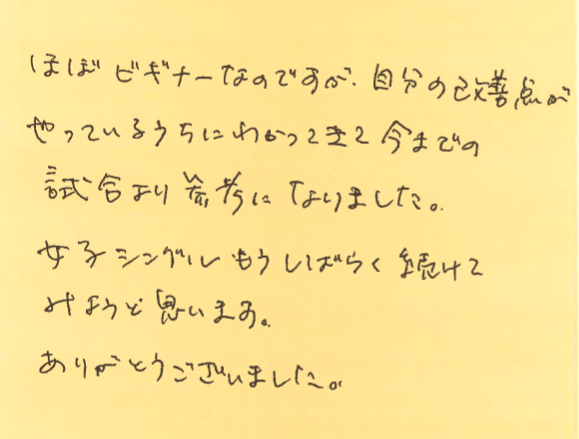 ほぼビギナーなのですが、自分の改善点が
やっているうちにわかってきて今までの
試合より参考になりました。
女子シングルもうしばらく続けて
みようと思います。
ありがとうございました。